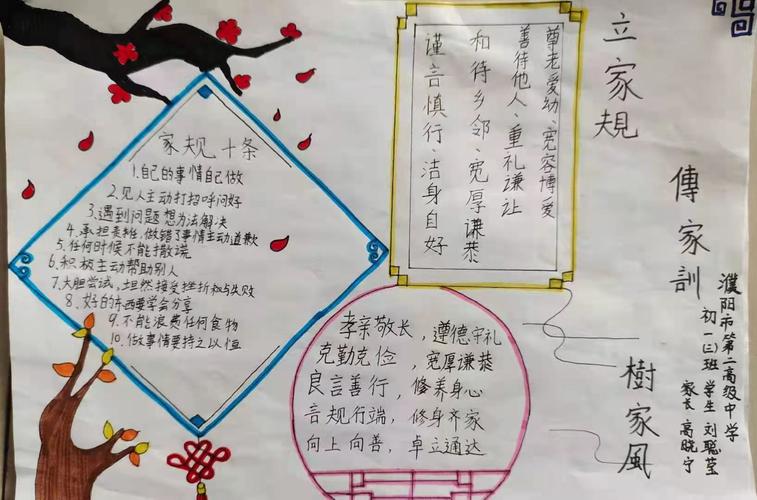 立家規
傳家訓
樹家風
濮阳市第二高级中学
初一(三)班 学生 刘聪莹
家长 高晓宁
尊老爱幼、宽容博爱
善待他人、重礼谦让
和待乡邻、宽厚谦恭
谨言慎行、洁身自好
家规十条
1.自己的事情自己做
2.见人主动打招呼问好
3.遇到问题想办法解决
4.承担责任,做错了事情主动道歉
5.任何时候不能撒谎
6.积极主动帮助别人
7.大胆尝试,坦然接受挫折和与失败
8.好的东西要学会分享
9.不能浪费任何食物
10.做事情要持之以恒
孝亲敬长，遵德守礼
克勤克俭，宽厚谦恭
良言善行，修养身心
言规行端，修身齐家
向上向善，卓立通达